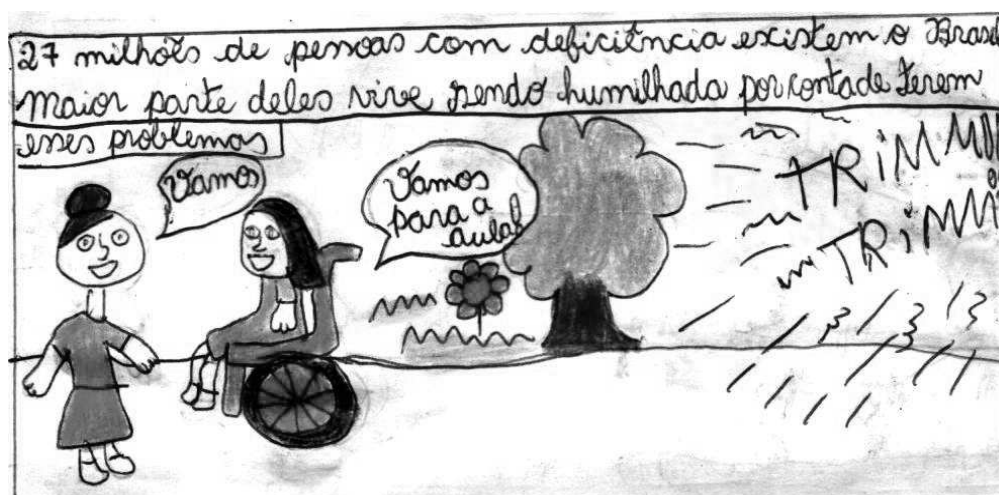 27 milhões de pessoas com deficiência existem o Brasil
maior parte deles vive sendo humilhada por conta de terem
esses problemas
Vamos
Vamos
para a
aula!
TRiMMM
TRiMMM